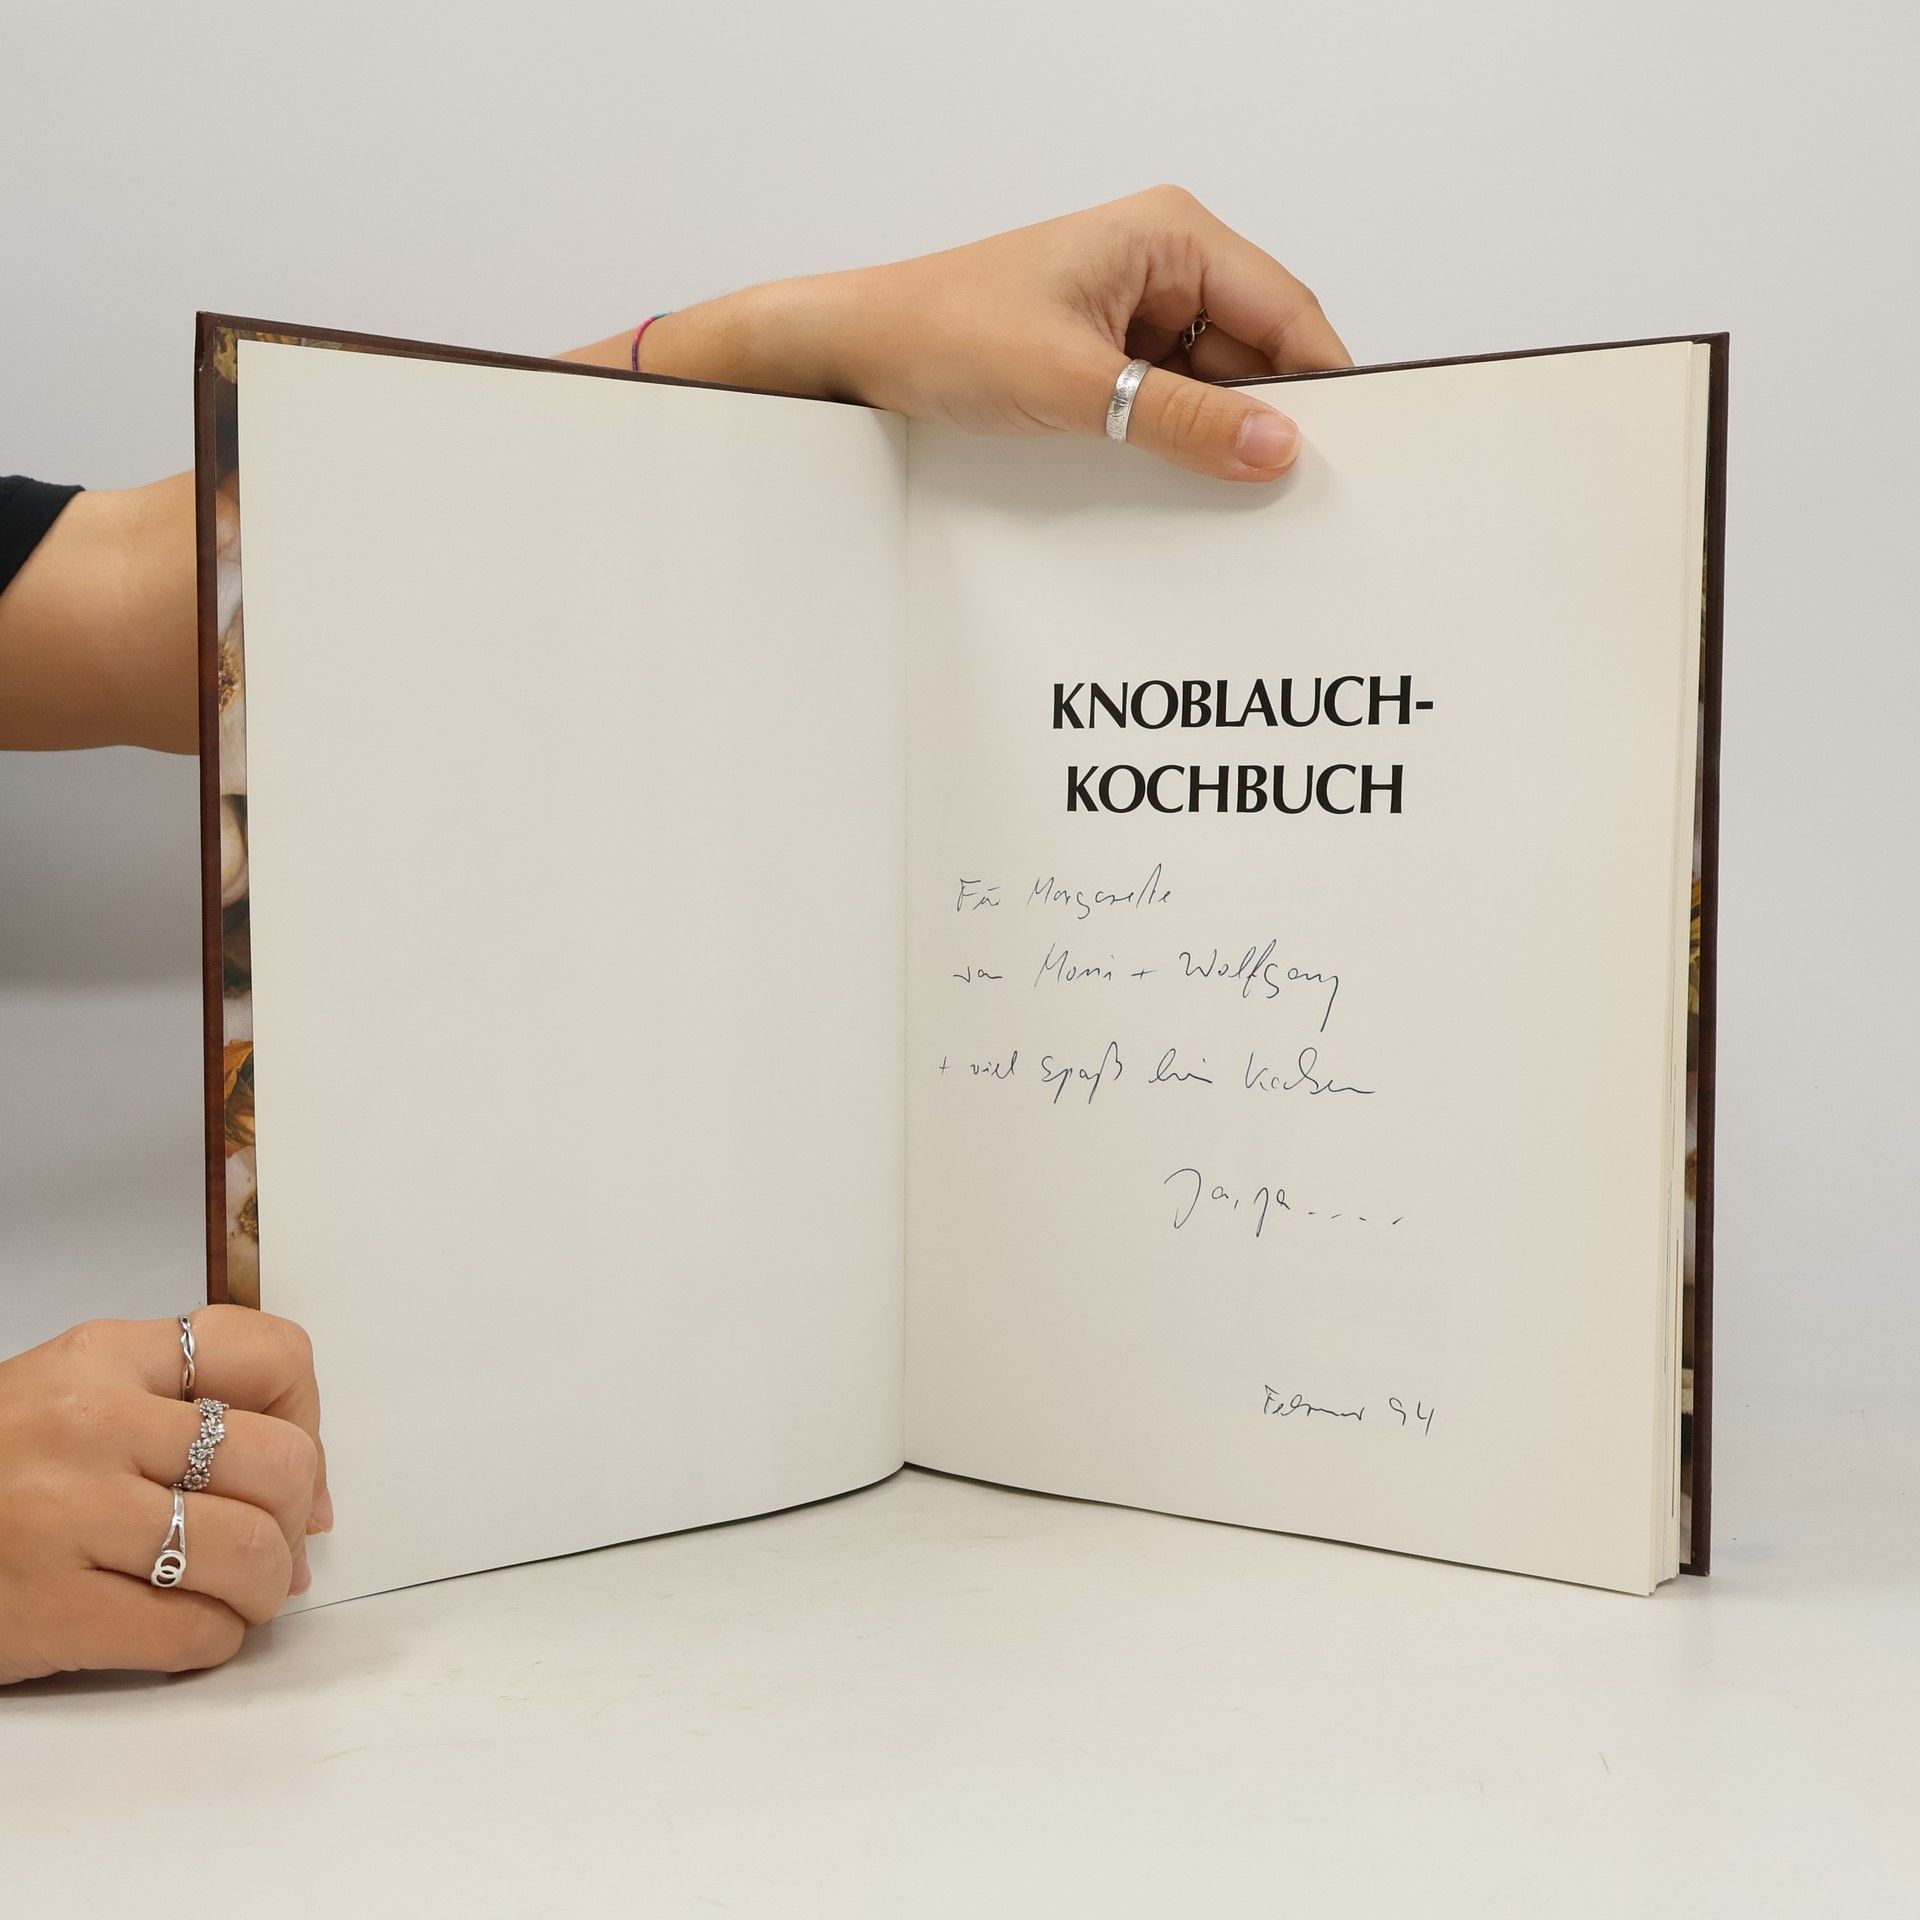 KNOBLAUCH-
KOCHBUCH
Für Margarethe
von Moni + Wolfgang
+ viel Spaß beim Kochen
Ja, ja.....
Februar 94